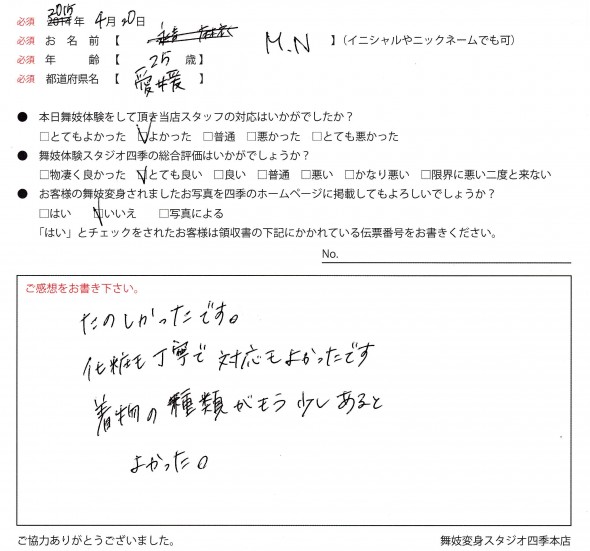 2015
必須 2014年 4月20日
必須 お 名 前 【 M.N 】(イニシャルやニックネームでも可)
必須 年 齢 【 25 歳】
必須 都道府県名 【 愛媛 】
● 本日舞妓体験をして頂き当店スタッフの対応はいかがでしたか？
□とてもよかった ☑よかった □普通 □悪かった □とても悪かった
● 舞妓体験スタジオ四季の総合評価はいかがでしょうか？
□物凄く良かった ☑とても良い □良い □普通 □悪い □かなり悪い □限界に悪い二度と来ない
● お客様の舞妓変身されましたお写真を四季のホームページに掲載してもよろしいでしょうか？
□はい ☑いいえ □写真による
「はい」とチェックをされたお客様は領収書の下記にかかれている伝票番号をお書きください。
No.
ご感想をお書き下さい。
たのしかったです。
化粧も丁寧で対応もよかったです
着物の種類がもう少しあると
よかった。
ご協力ありがとうございました。 舞妓変身スタジオ四季本店